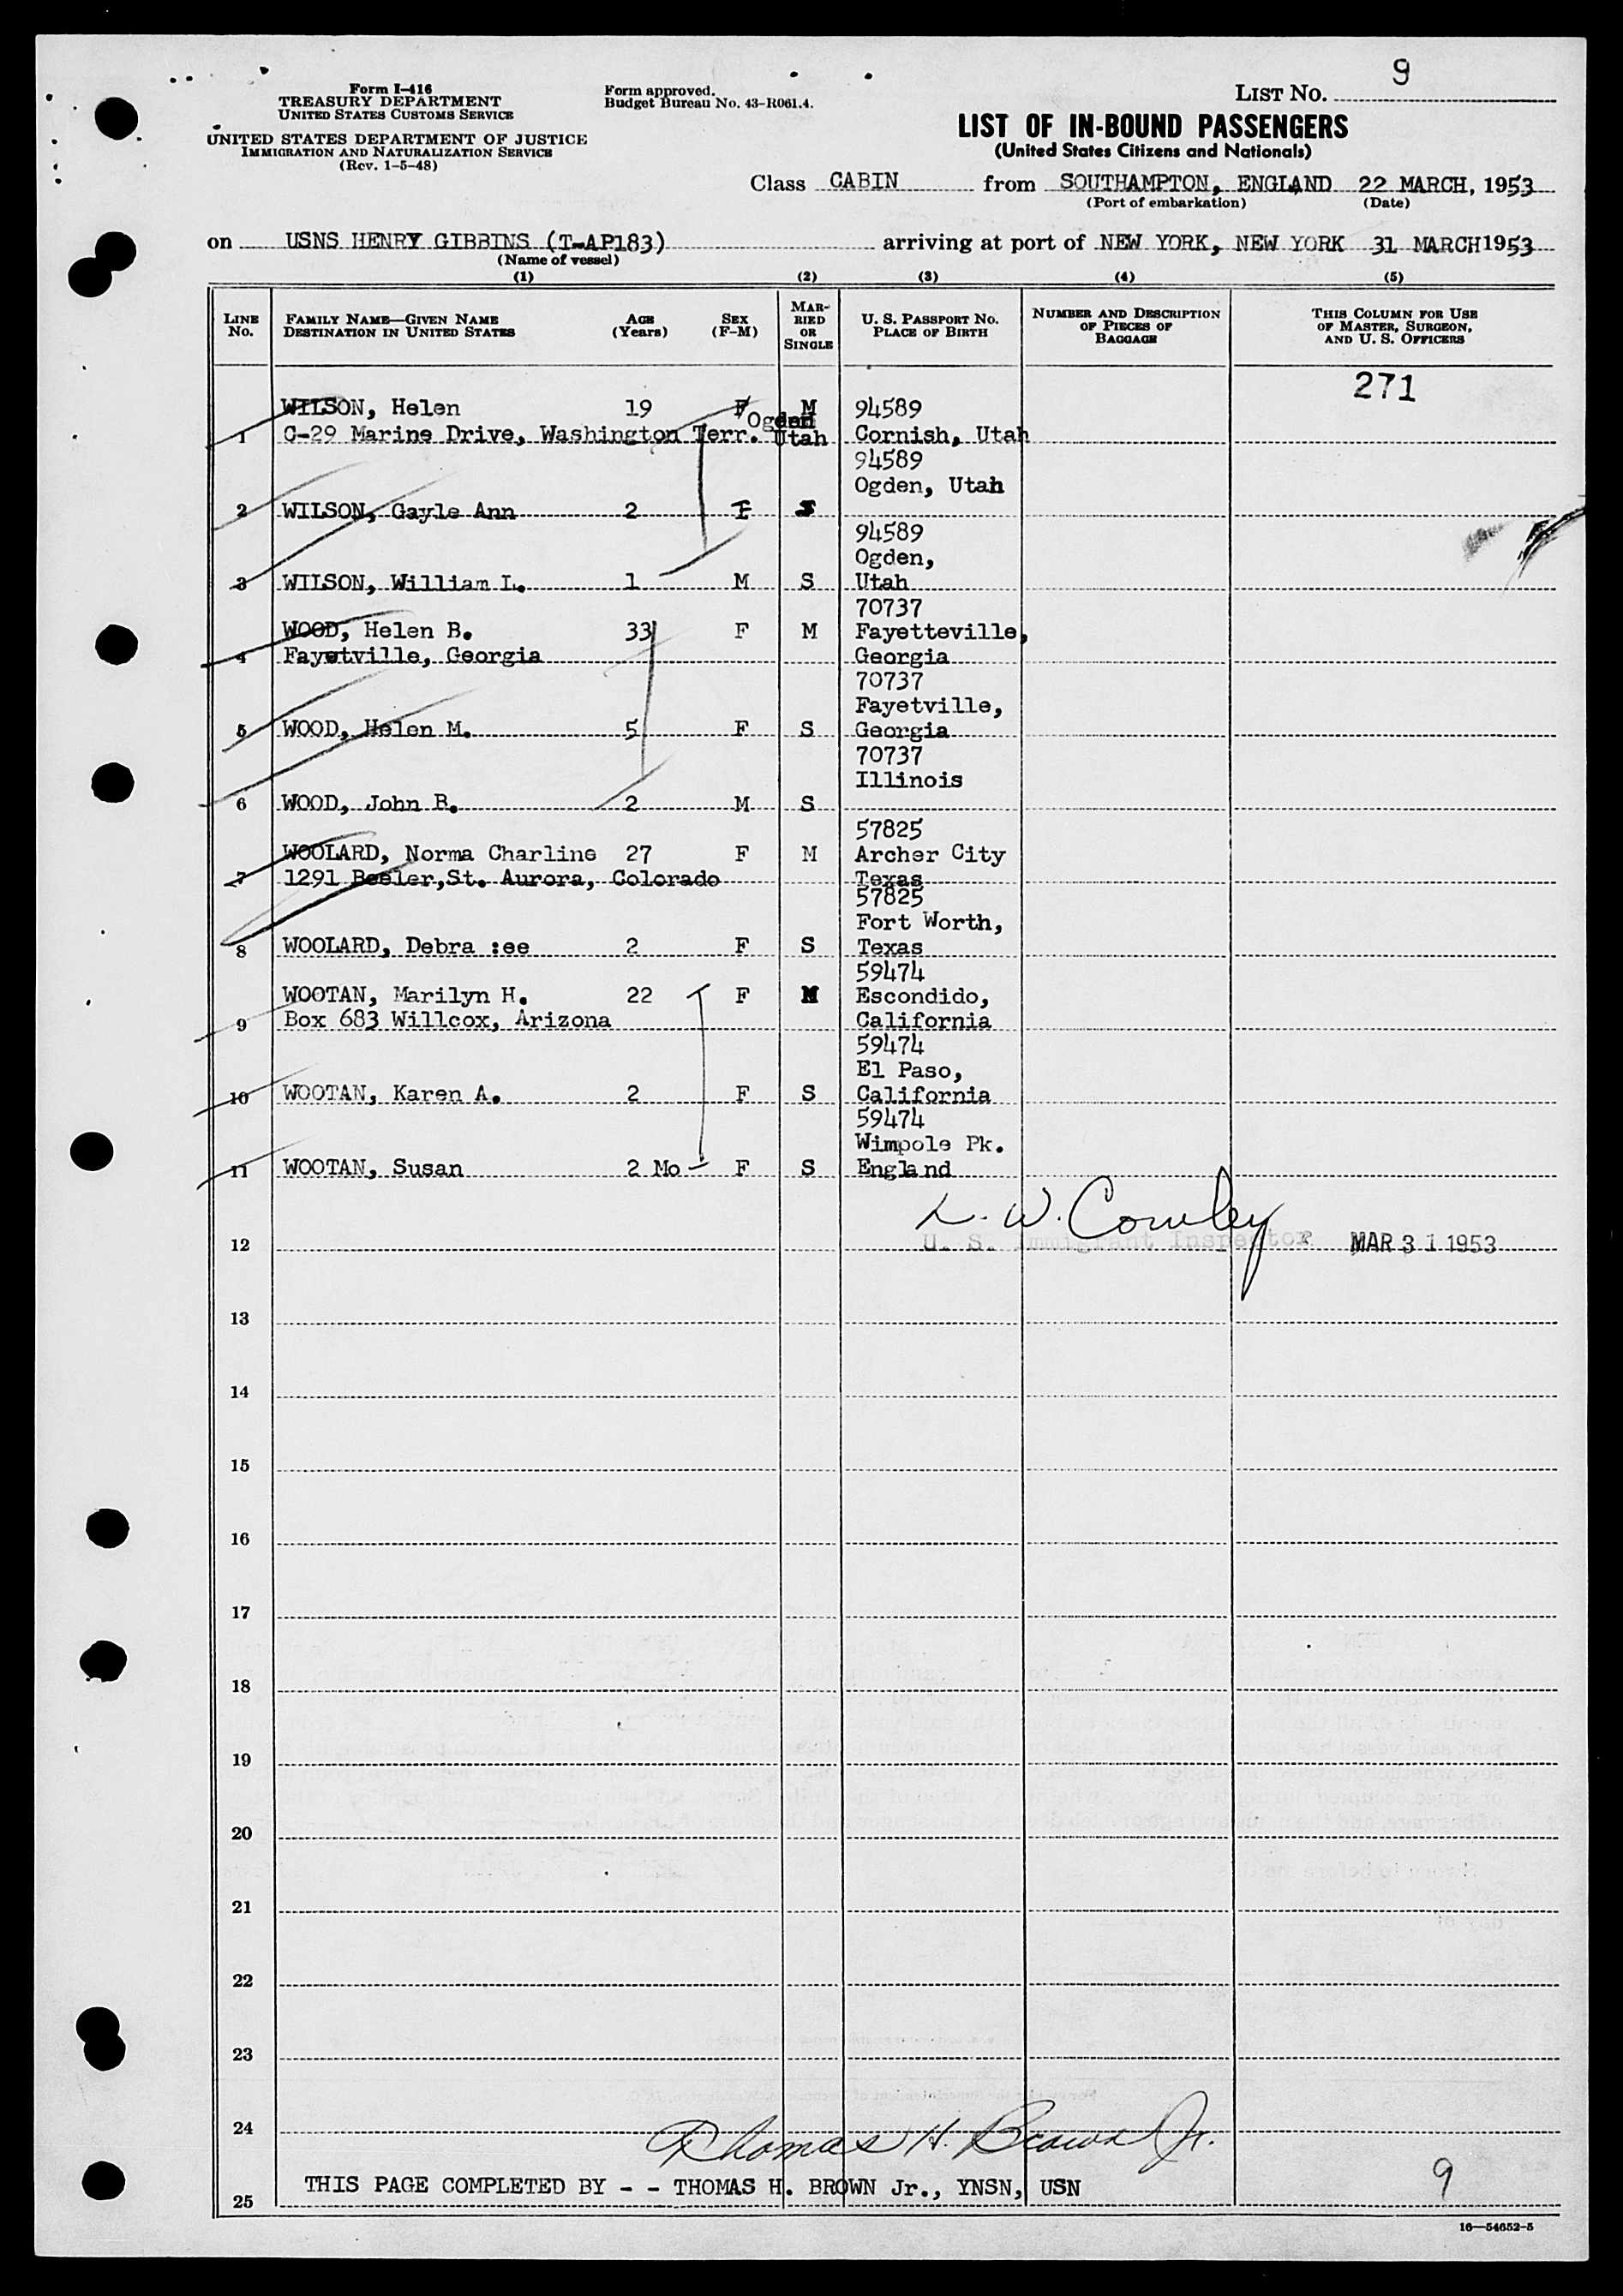 Form I-416
TREASURY DEPARTMENT
UNITED STATES CUSTOMS SERVICE
UNITED STATES DEPARTMENT OF JUSTICE
IMMIGRATION AND NATURALIZATION SERVICE
(Rev. 1-5-48)
Form approved.
Budget Bureau No. 43-R061.4.
LIST No. 9
LIST OF IN-BOUND PASSENGERS
(United States Citizens and Nationals)
Class CABIN from SOUTHAMPTON, ENGLAND 22 MARCH, 1953
(Port of embarkation) (Date)
on USNS HENRY GIBBINS (T-AP183) arriving at port of NEW YORK, NEW YORK 31 MARCH 1953
(Name of vessel)
(1) (2) (3) (4) (5)
LINE No. FAMILY NAME—GIVEN NAME DESTINATION IN UNITED STATES AGE (Years) SEX (F-M) MARRIED OR SINGLE U. S. PASSPORT No. PLACE OF BIRTH NUMBER AND DESCRIPTION OF PIECES OF BAGGAGE THIS COLUMN FOR USE OF MASTER, SURGEON, AND U. S. OFFICERS
271
WILSON, Helen 19 F M 94589
1 C-29 Marine Drive, Washington Terr. Ogden Utah Cornish, Utah
94589
Ogden, Utah
2 WILSON, Gayle Ann 2 F S
94589
Ogden,
3 WILSON, William L. 1 M S Utah
70737
WOOD, Helen B. 33 F M Fayetteville,
4 Fayetville, Georgia Georgia
70737
Fayetville,
5 WOOD, Helen M. 5 F S Georgia
70737
Illinois
6 WOOD, John B. 2 M S
57825
WOOLARD, Norma Charline 27 F M Archer City
7 1291 Beeler,St. Aurora, Colorado Texas
57825
Fort Worth,
8 WOOLARD, Debra :ee 2 F S Texas
59474
WOOTAN, Marilyn H. 22 F M Escondido,
9 Box 683 Willcox, Arizona California
59474
El Paso,
10 WOOTAN, Karen A. 2 F S California
59474
Wimpole Pk.
11 WOOTAN, Susan 2 Mo F S England
L. W. Cowley
12 U. S. Immigrant Inspector MAR 31 1953
13
14
15
16
17
18
19
20
21
22
23
24
Thomas H. Brown Jr.
25 THIS PAGE COMPLETED BY - - THOMAS H. BROWN Jr., YNSN, USN 9
16—54652-5